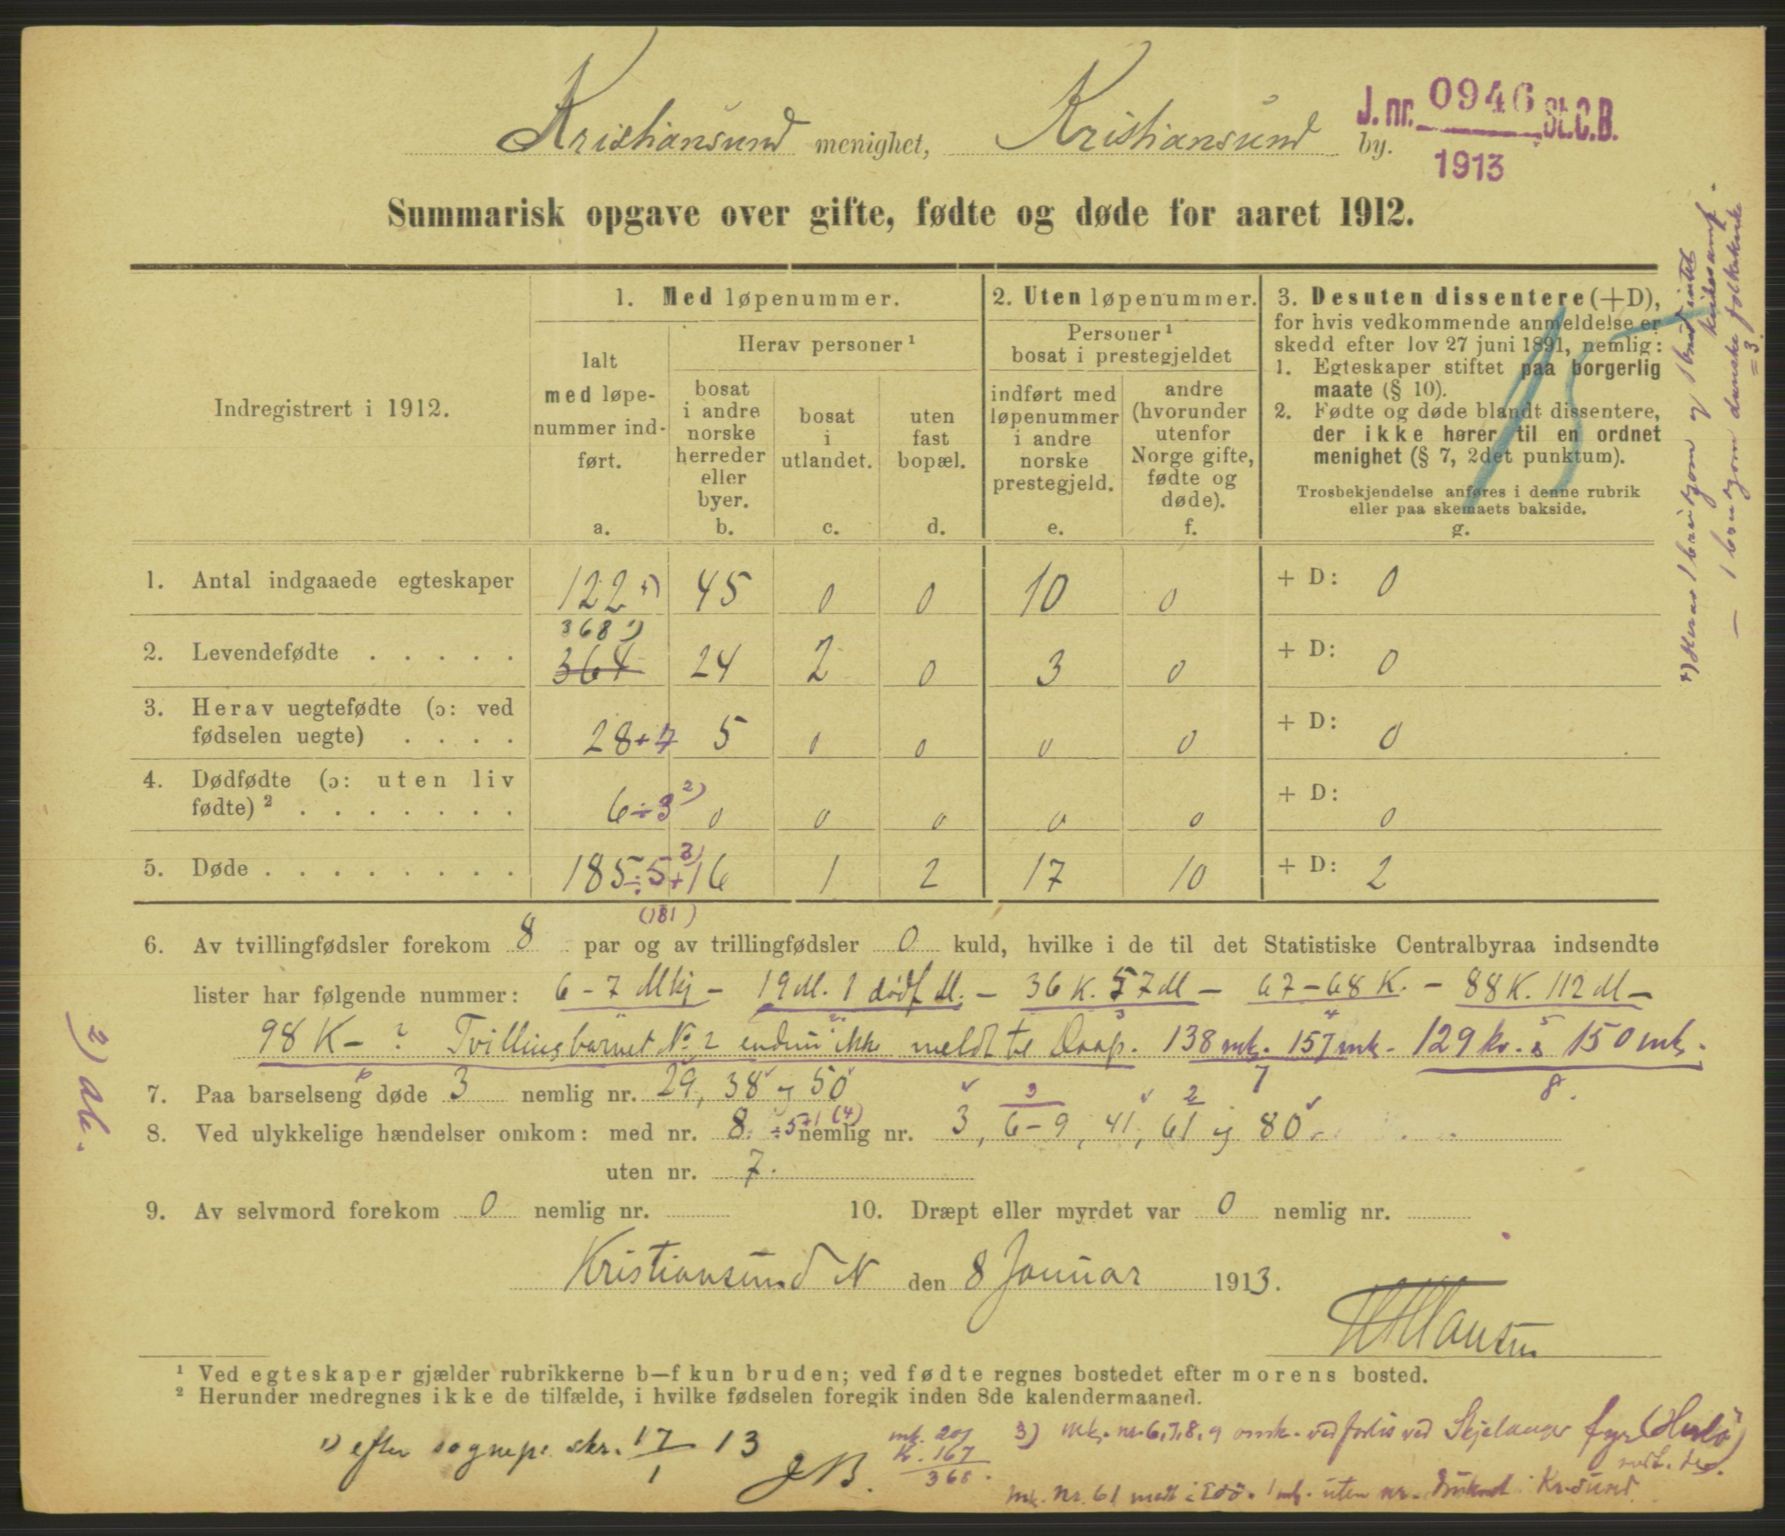 Kristiansund menighet, Kristiansund by.
J. nr. 0946 St. C. B.
1913
Summarisk opgave over gifte, fødte og døde for aaret 1912.
Indregistrert i 1912.
1. Med løpenummer.
Ialt med løpenummer indført.
a.
Herav personer ¹
bosat i andre norske herreder eller byer.
b.
bosat i utlandet.
c.
uten fast bopæl.
d.
2. Uten løpenummer.
Personer ¹ bosat i prestegjeldet
indført med løpenummer i andre norske prestegjeld.
e.
andre (hvorunder utenfor Norge gifte, fødte og døde).
f.
3. Desuten dissentere (+D),
for hvis vedkommende anmeldelse er
skedd efter lov 27 juni 1891, nemlig:
1. Egteskaper stiftet paa borgerlig
maate (§ 10).
2. Fødte og døde blandt dissentere,
der ikke hører til en ordnet
menighet (§ 7, 2det punktum).
Trosbekjendelse anføres i denne rubrik
eller paa skemaets bakside.
g.
15
1. Antal indgaaede egteskaper 122 45 0 0 10 0 + D: 0
368 ¹)
2. Levendefødte . . . . . 364 24 2 0 3 0 + D: 0
3. Herav uegtefødte (ɔ: ved
fødselen uegte) . . . . 28+7 5 0 0 0 0 + D: 0
4. Dødfødte (ɔ: uten liv
fødte) ² . . . . . . . 6÷3 ²) 0 0 0 0 0 + D: 0
5. Døde . . . . . . . . 185÷5+1 ³) 16 1 2 17 10 + D: 2
(181)
6. Av tvillingfødsler forekom 8 par og av trillingfødsler 0 kuld, hvilke i de til det Statistiske Centralbyraa indsendte
lister har følgende nummer: 6-7 Mkj - 19 M. 1 dødf M. - 36 K. 57 M - 67-68 K. - 88 K. 112 M -
98 K - ? Tvillingbarnet No 2 endnu ikke meldt til Daap. 138 mk. 157 mk. 129 kv. 150 mk.
7. Paa barselseng døde 3 nemlig nr. 29, 38 og 50
8. Ved ulykkelige hændelser omkom: med nr. 8 ÷5+1 (4) nemlig nr. 3, 6-9, 41, 61 og 80
uten nr. 7.
9. Av selvmord forekom 0 nemlig nr.
10. Dræpt eller myrdet var 0 nemlig nr.
Kristiansund N den 8 Januar 1913.
Hansen
¹ Ved egteskaper gjælder rubrikkerne b—f kun bruden; ved fødte regnes bostedet efter morens bosted.
² Herunder medregnes ikke de tilfælde, i hvilke fødselen foregik inden 8de kalendermaaned.
¹) efter sognepr. skr. 17/1 13
mk. 201
K. 167
368.
3) mk. nr. 6, 7, 8, 9 omk. ved forlis ved fyr
mk. nr. 61 Edø. 1 mk. uten nr. Kr.sund
2) Al.